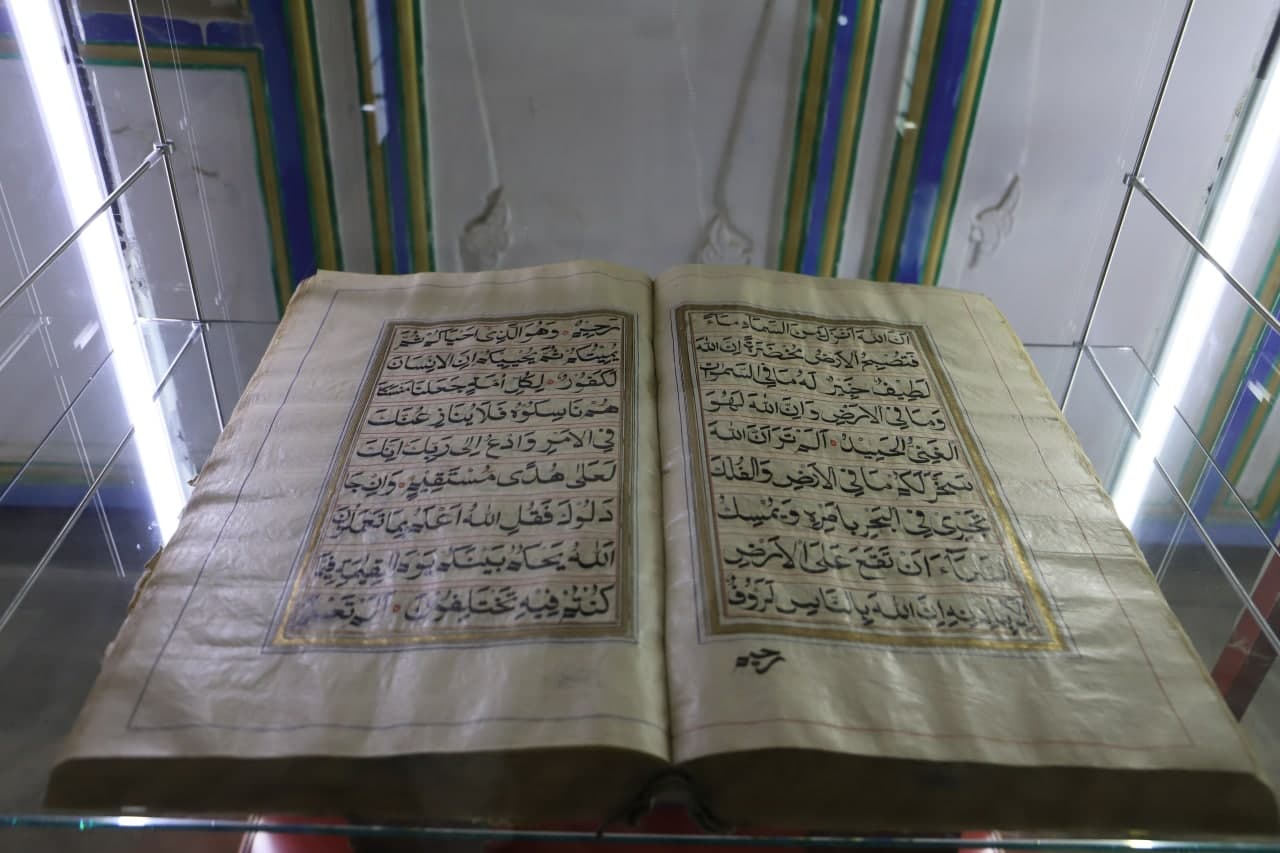 ان الله انزل من السماء ماء
فتصبح الارض مخضرة ان الله
لطيف خبير له ما في السموات
وما في الارض وان الله لهو
الغني الحميد الم تر ان الله
سخر لكم ما في الارض والفلك
تجري في البحر بامره ويمسك
السماء ان تقع على الارض
الا باذنه ان الله بالناس لرءوف
رحيم
رحيم وهو الذي احياكم ثم
يميتكم ثم يحييكم ان الانسان
لكفور لكل امة جعلنا منسكا
هم ناسكوه فلا ينازعنك
في الامر وادع الى ربك انك
لعلى هدى مستقيم وان جا
دلوك فقل الله اعلم بما تعملون
الله يحكم بينكم يوم القيمة فيما
كنتم فيه تختلفون الم تعلم